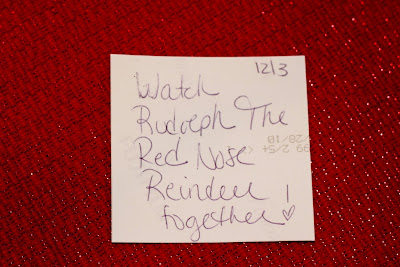 12/3
Watch
Rudolph The
Red Nose
Reindeer !
together ♡